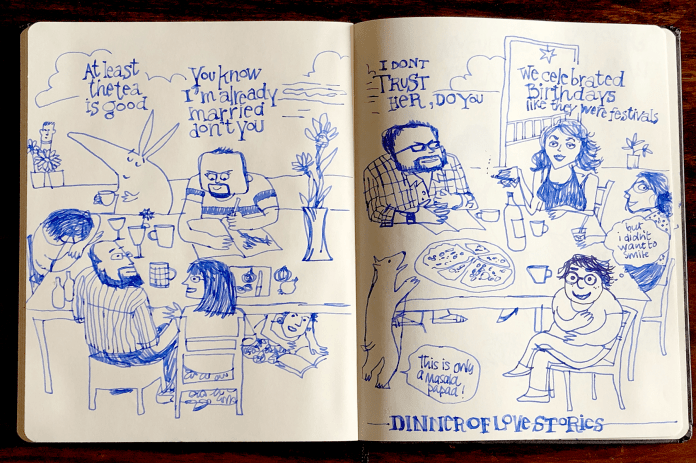 At least
the tea
is good
You know
I'm already
married
don't you
I DONT
TRUST
HER, DO YOU
We celebrated
Birthdays
like they were festivals
but
i didn't
want to
smile
This is only
a masala
papad!
DINNER OF LOVE STORIES